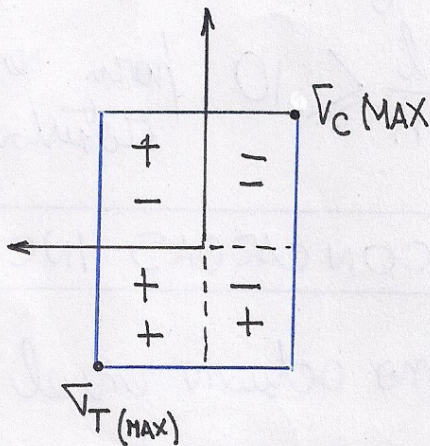 σC MAX
+ −
− −
+ −
+ +
σT (MAX)